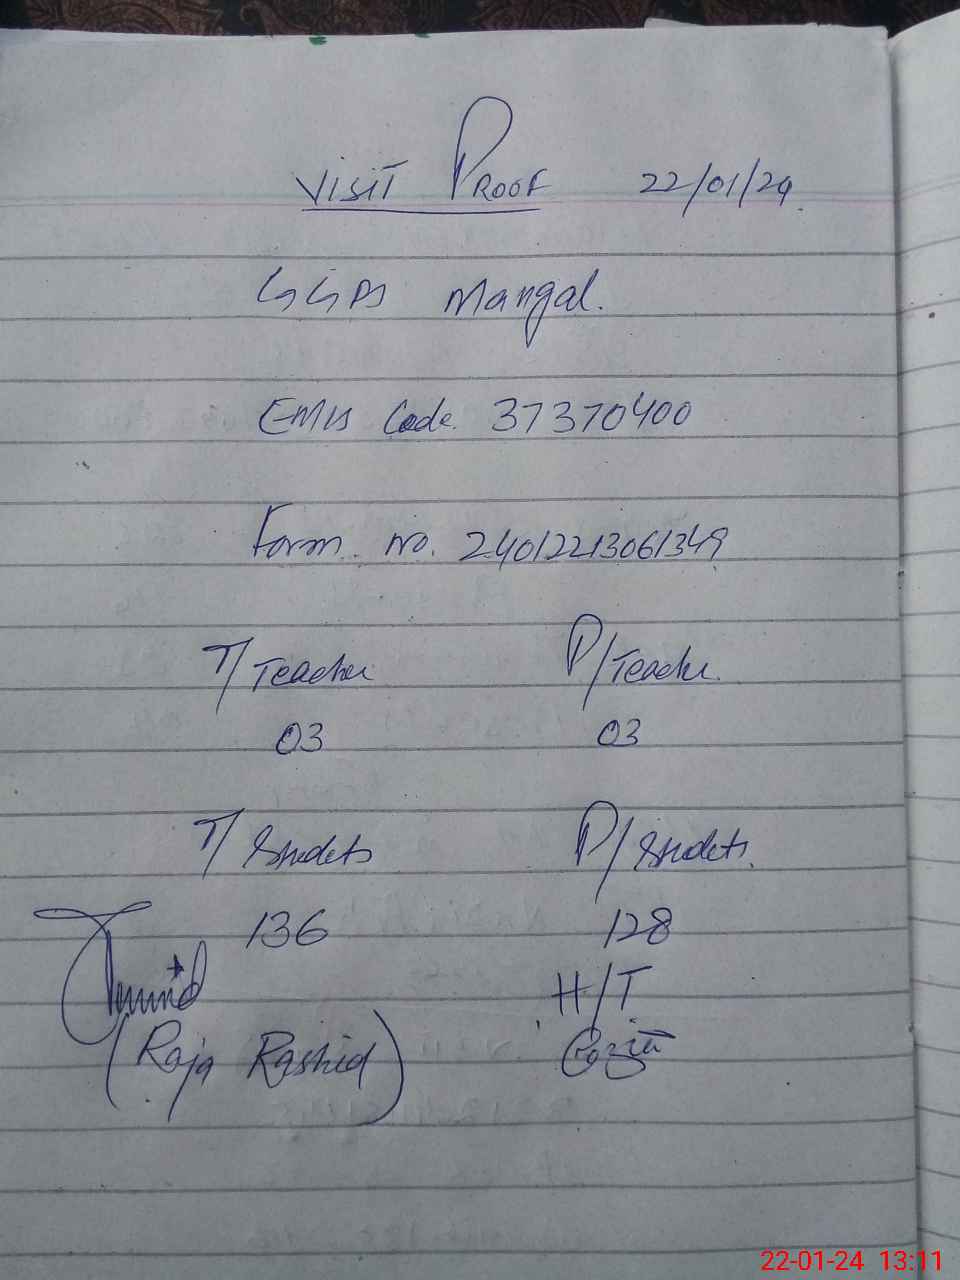 VISIT PROOF 22/01/24
GGPS Mangal.
EMIS Code. 37370400
Form no. 24012213061349
T/Teacher P/Teacher
03 03
T/Studets P/Studets.
136 128
H/T
(Raja Rashid)
22-01-24 13:11